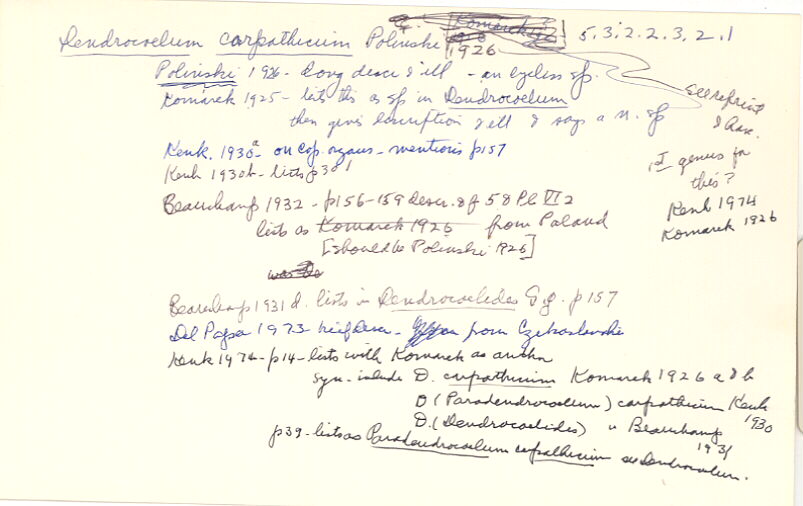 Dendrocoelum carpathicum Polinski [Komarek ? 1926 5.3.2.2.3.2.1
Polinski 1926 - Long descr & ill - an eyeless sp.
Komarek 1925 - lists this as sp in Dendrocoelum
then gives description & ill & says a n. sp
see reprint
I have.
Kenk. 1930a - on cop. organs - mentions p157
Kenk 1930b - lists p 301
genus for
this?
Kenk 1974
Komarek 1926
Beauchamp 1932 - p156-159 descr. & f 58 Pl VI 2
lists as Komarek 1926 from Poland
[should be Polinski 1926]
Beauchamp 1931d. lists in Dendrocoelides p 157
Del Papa 1973 brief descr - from Czekoslovakia
Kenk 1974 - p14 - lists with Komarek as author
syn. include D. carpathicum Komarek 1926 a & b
D (Paradendrocoelum) carpathicum Kenk 1930
D. (Dendrocoelides) " Beauchamp 1931
p39 - lists as Paradendrocoelum carpathicum see Dendrocoelum.